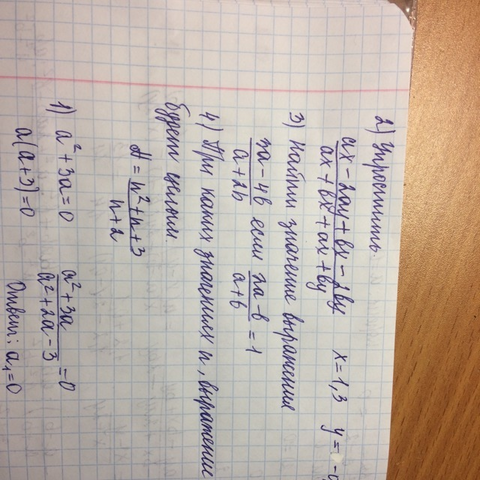 2) Упростить
ax - 2ay + bx - 2by / ax + bx + ax + by x = 1,3 y = -0
3) Найти значение выражения
3a - 4b / a + 2b если 2a - b / a + b = 1
4) При каких значениях n, выражение
будет целым.
A = n² + n + 3 / n + 2
1) a² + 3a = 0 a² + 3a / a² + 2a - 3 = 0
a(a + 3) = 0 Ответ: a₁ = 0